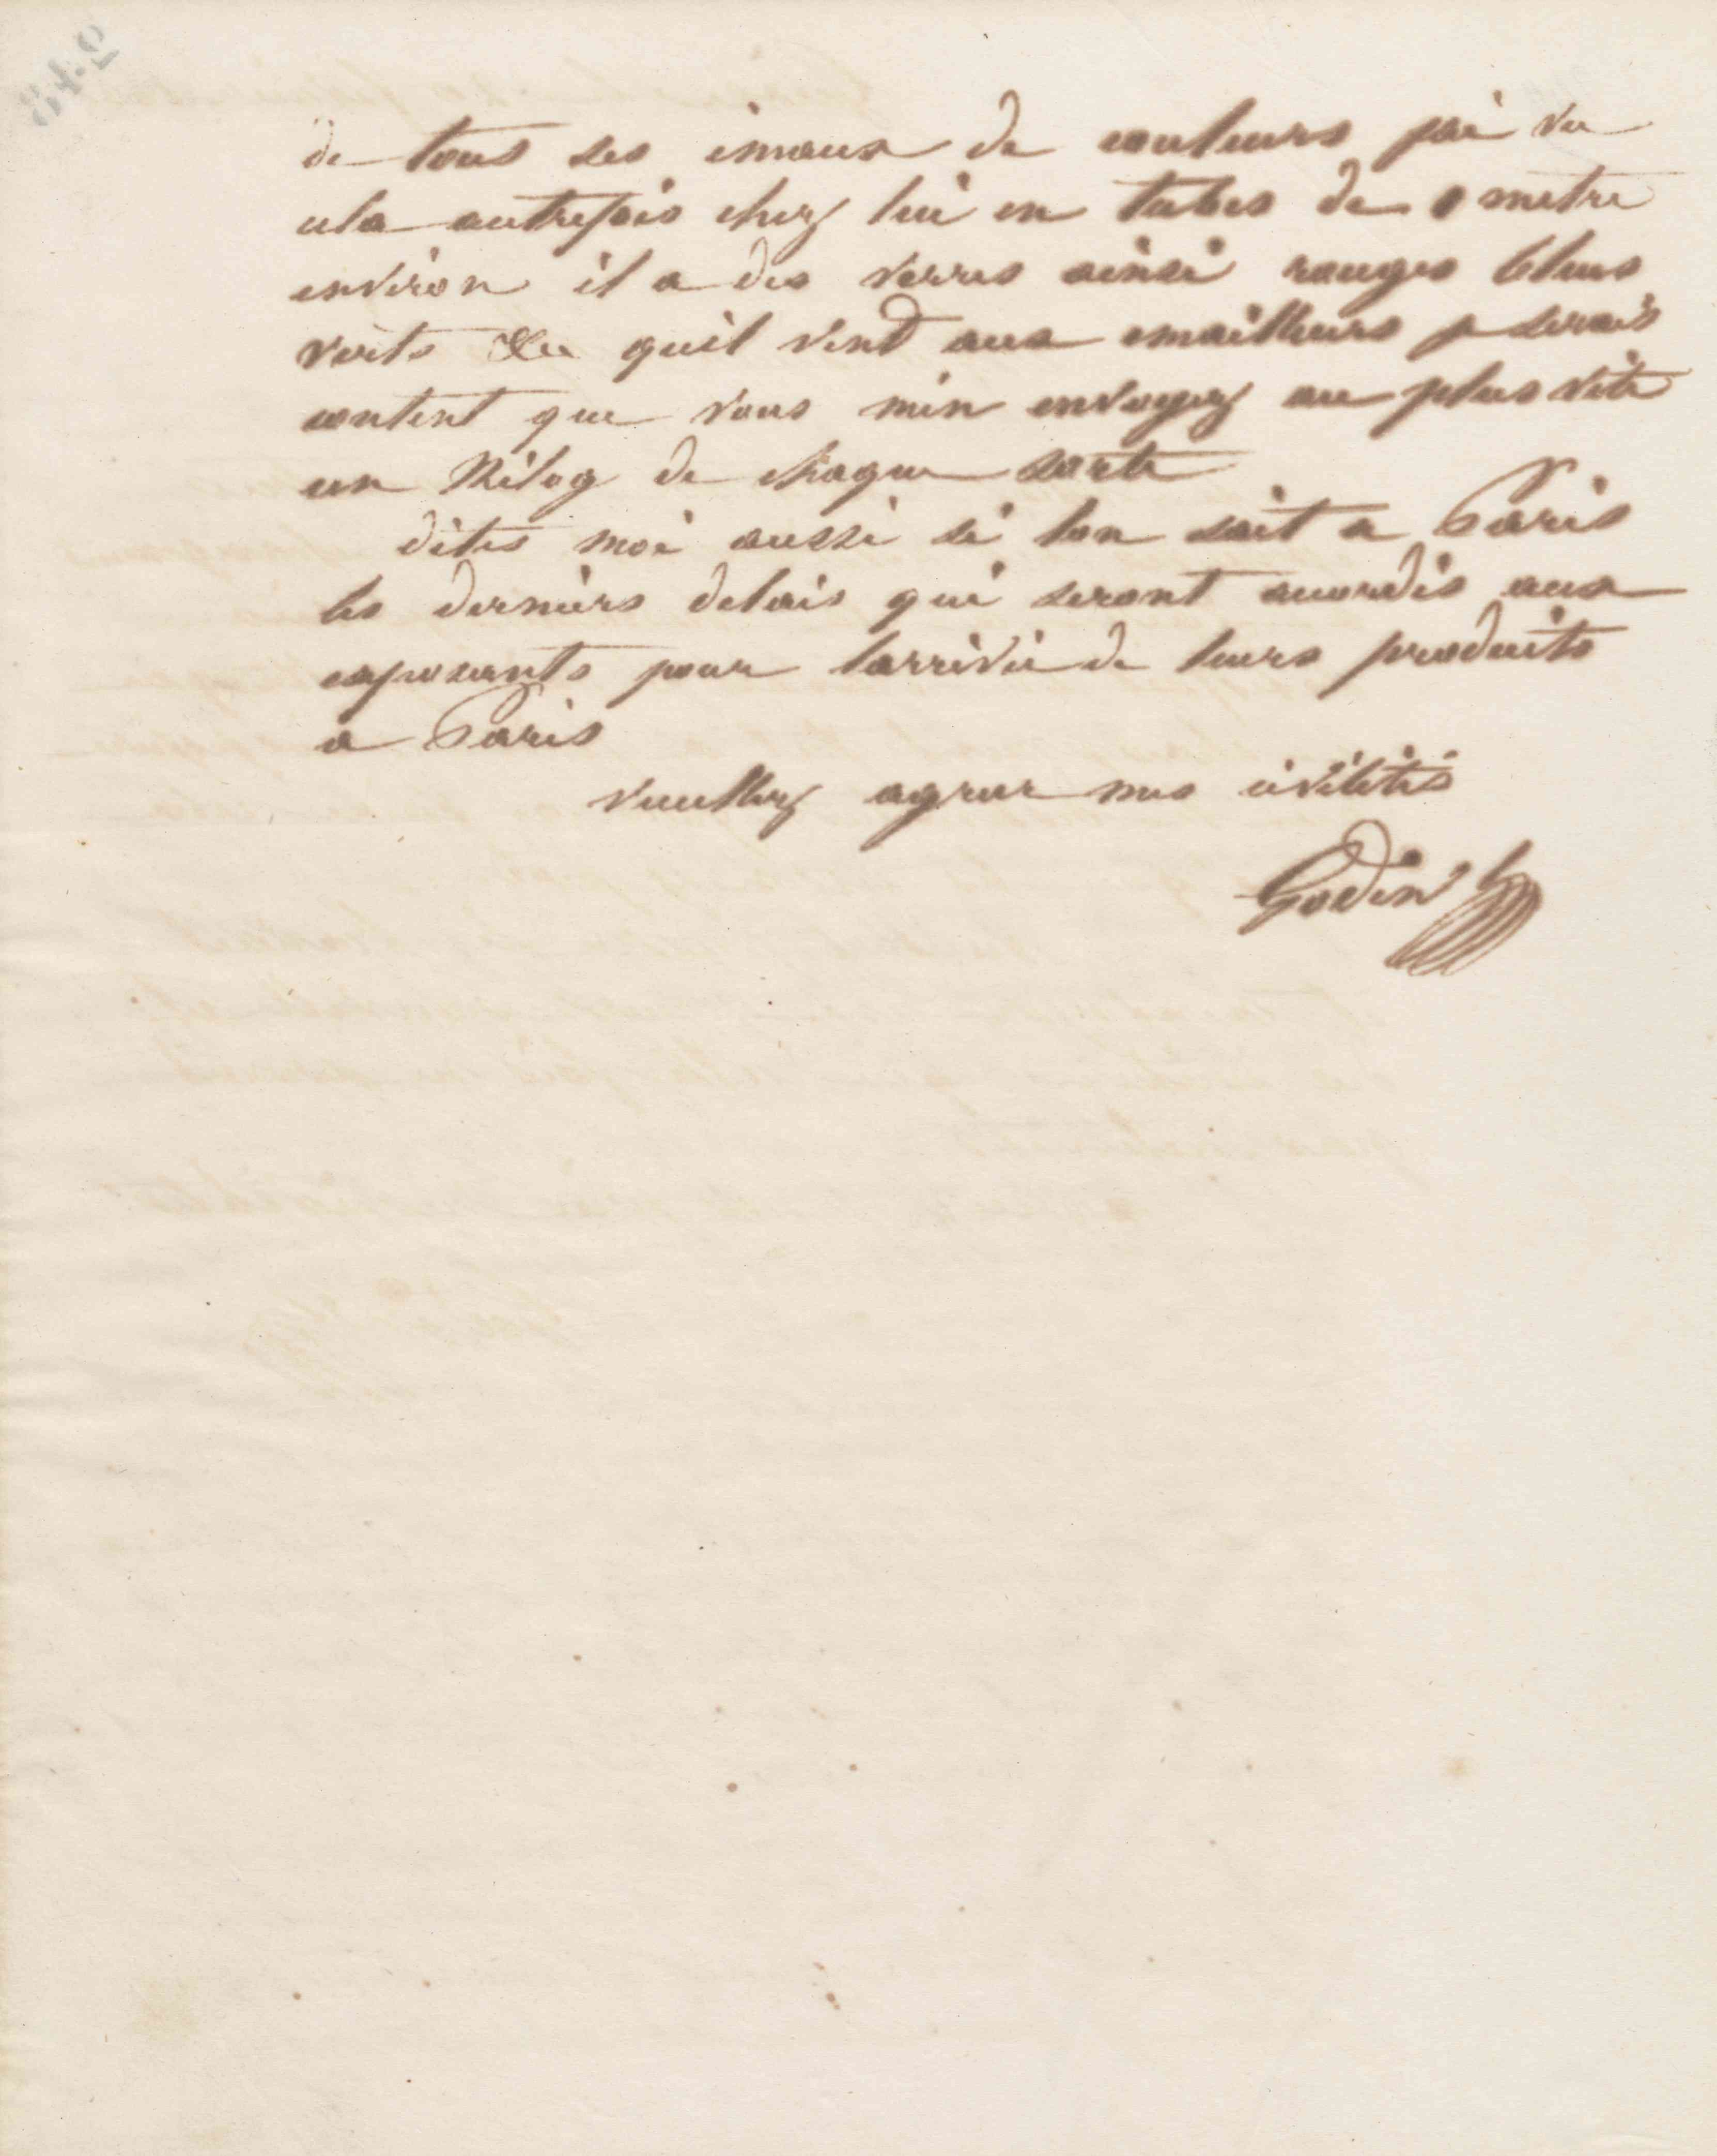 de tous ses émaux de couleurs jai vu
cela autrefois chez lui en tubes de 1 metre
environ il a des verres ainsi rouges bleus
verts &c quil vend aux emailleurs je serais
content que vous men envoyez au plus vite
un Kilog de chaque sorte
dites moi aussi si lon sait a Paris
les derniers delais qui seront accordés aux
exposants pour larrivée de leurs produits
a Paris
veuillez agreer mes civilités
Godin